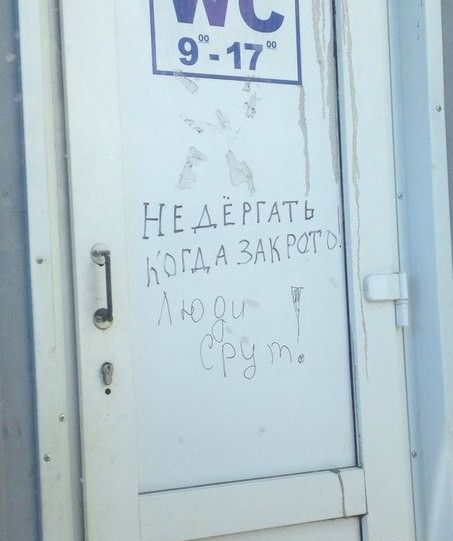 WC
9⁰⁰ - 17⁰⁰
НЕ ДЁРГАТЬ
КОГДА ЗАКРОТО.
Люди !
Срут.